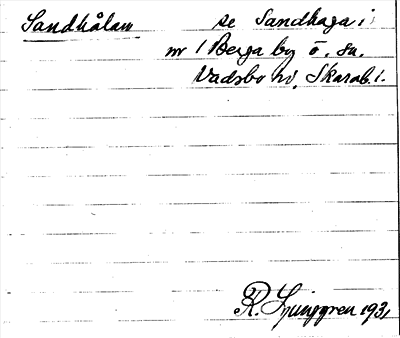 Sandhålan se Sandhaga i
nr 1 Berga by o. sn.
Vadsbo hd, Skarab. l.
R. Ljunggren 1931